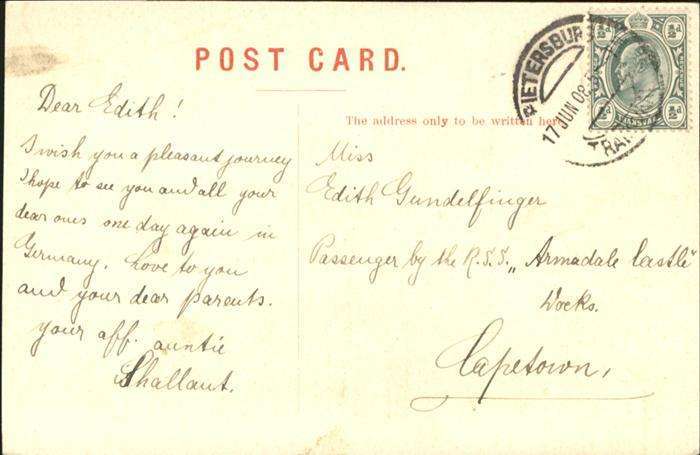 POST CARD.
The address only to be written here
PIETERSBURG
17 JUN 08
TRA
½d ½d
½d ½d
Dear Edith!
I wish you a pleasant journey
I hope to see you and all your
dear ones one day again in
Germany. Love to you
and your dear parents.
your aff. auntie
Miss
Edith Gundelfinger
Passenger by the R.S.S. „Armadale Castle“
Docks.
Capetown,